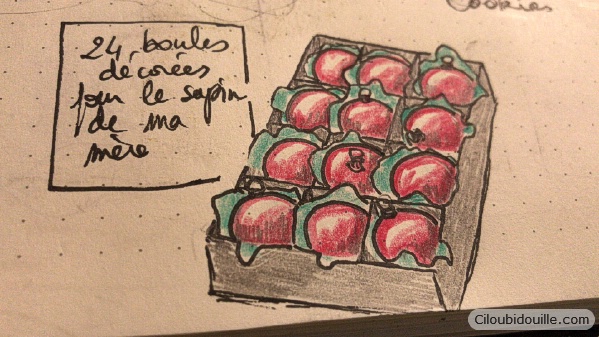 Cookies
24 boules
décorées
pour le sapin
de ma
mère
Ciloubidouille.com